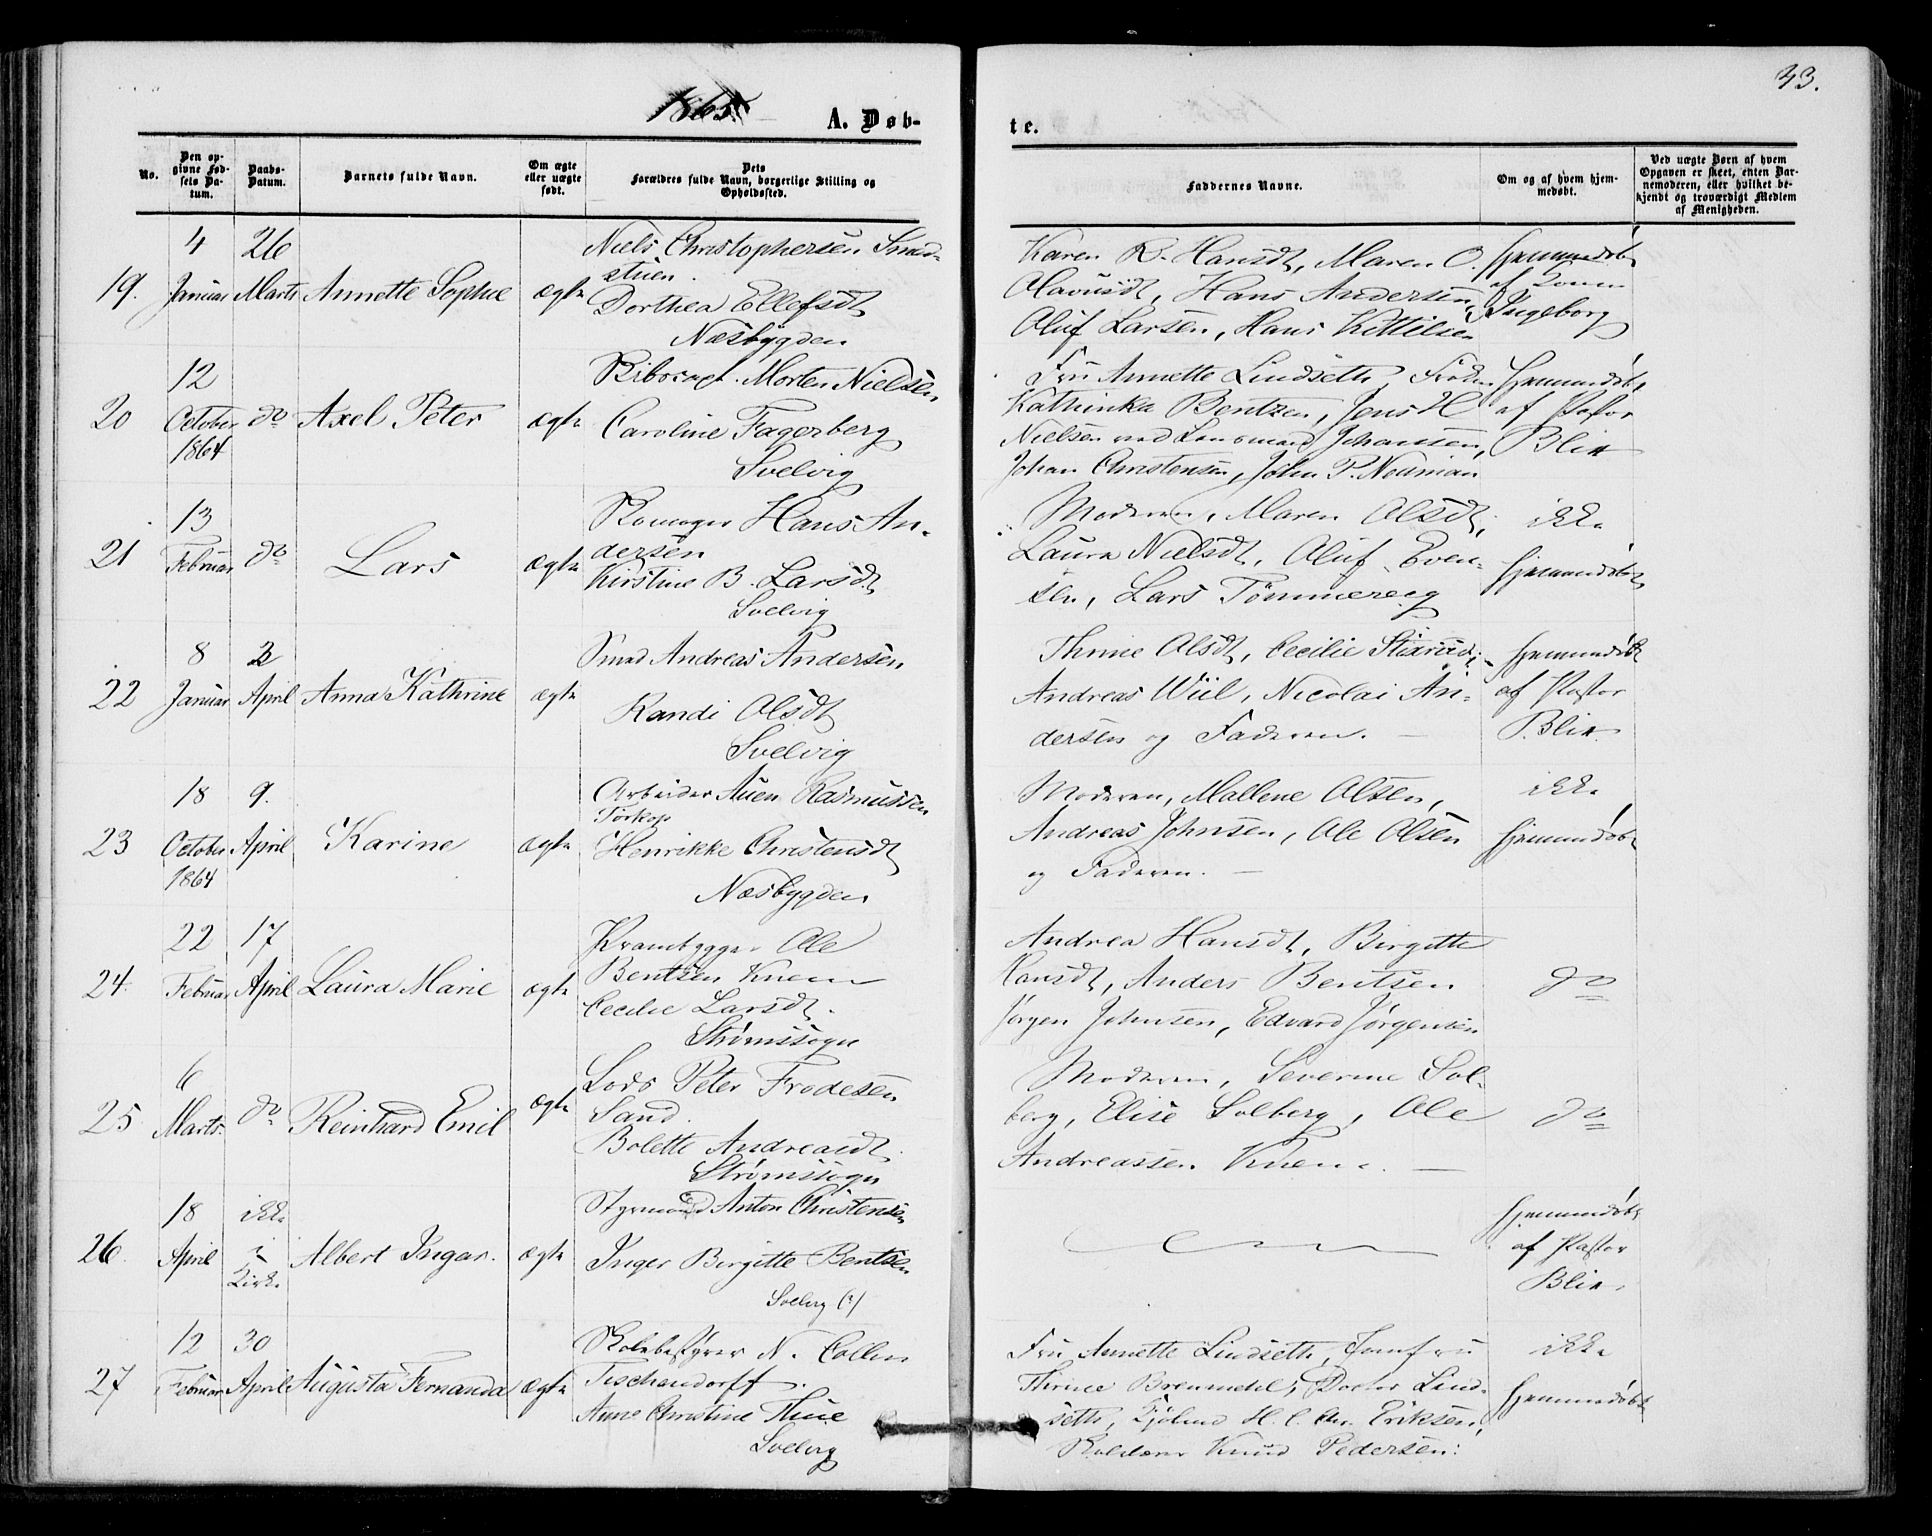 1865.
33.
A. Døb-
te.
No.
Den op-
givne Fød-
sels Da-
tum.
Daabs-
Datum.
Barnets fulde Navn.
Om ægte
eller uægte
født.
Dets
Forældres fulde Navn, borgerlige Stilling og
Opholdssted.
Faddernes Navne.
Om og af hvem hjem-
medøbt.
Ved uægte Børn af hvem
Opgaven er skeet, enten Bar-
nemoderen, eller hvilket be-
kjendt og troværdigt Medlem
af Menigheden.
19.
4
Januar
26
Marts
Annette Sophie
ægte
Niels Christophersen Smed-
stuen.
Dorthea Ellefsdt
Næsbygden
Karen R. Hansdt, Maren O.
Olavusdt, Hans Andersen,
Oluf Larsen, Hans Kittilsen
Hjemmedøbt
af Konen
Ingeborg
20
12
October
1864
do
Axel Peter
ægte
Morten Nielsen
Caroline Fagerberg
Svelvig
Fru Annette Lindseth,
Kathinka Bentzen, Jens H
Nielsen Johansen,
Johan Christensen, John P. Neuman
Hjemmedøbt
af Pastor
Blix
21
13
Februar
do
Lars
ægte
Hans An-
dersen
Kirstine B. Larsdt
Svelvig
Moderen, Maren Olsdt,
Laura Nielsdt, Oluf Even-
sen, Lars Tømmeraeg
ikke
hjemmedøbt
22
8
Januar
2
April
Anna Kathrine
ægte
Smed Andreas Andersen
Randi Olsdt
Svelvig
Thrine Olsdt, Cecilie Stixrud,
Andreas Wiil, Nicolai An-
dersen og Faderen.
hjemmedøbt
af Pastor
Blix
23
18
October
1864
9.
April
Karine
ægte
Arbeider Auen Rasmussen
Torkop
Henrikke Christensdt
Næsbygden
Moderen, Mallene Olsen,
Andreas Johnsen, Ole Olsen
og Faderen.
ikke
hjemmedøbt
24.
22
Februar
17
April
Laura Marie
ægte
Ole
Bentsen Knem
Cecilie Larsdt.
Strømssogn
Andrea Hansdt, Birgitte
Hansdt, Anders Bentsen
Jørgen Johnsen, Edvard Jørgensen
do
25
6
Marts
do
Reinhard Emil
ægte
Lods Peter Frodesen
Sand.
Bolette Andreasdt
Strømssogn
Moderen, Severine Sol-
berg, Elise Solberg, Ole
Andreassen Knem.
do
26
18
April
ikke
i
Kirke
Albert Ingar.
ægte
Styrmand Anton Christensen
Inger Birgitte Bentsen
Svelvig (?)
hjemmedøbt
af Pastor
Blix.
27
12
Februar
30
April
Augusta Fernanda
ægte
Skolebestyrer N. Collin
Tischendorff.
Anne Christine Thue
Svelvig
Fru Annette Lindseth, Jomfru
Thrine Bremmehl, Doctor Lind-
seth, H. C. Chr. Eriksen,
Knud Pedersen.
ikke
hjemmedøbt